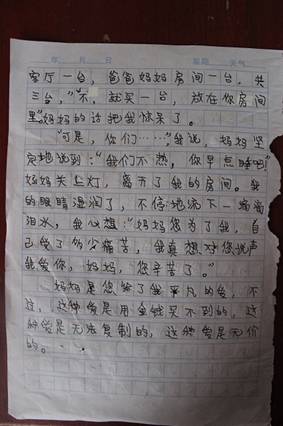 年 月 日 星期 天气
客厅一台,爸爸妈妈房间一台,共
三台,”“不,就买一台,放在你房间
里”妈妈的话把我惊呆了。
“可是,你们……”我说,妈妈坚
定地说到:“我们不热,你早点睡吧”
妈妈关上灯,离开了我的房间。我
的眼睛湿润了,不停地流下一滴滴
泪水,我心想:“妈妈您为了我,自
己受了多少痛苦,我真想对您说声
我爱你,妈妈,您辛苦了。”
妈妈是您给了我平凡的爱,不
过,这种爱是用金钱买不到的,这
种爱是无法复制的,这种爱是无价
的。